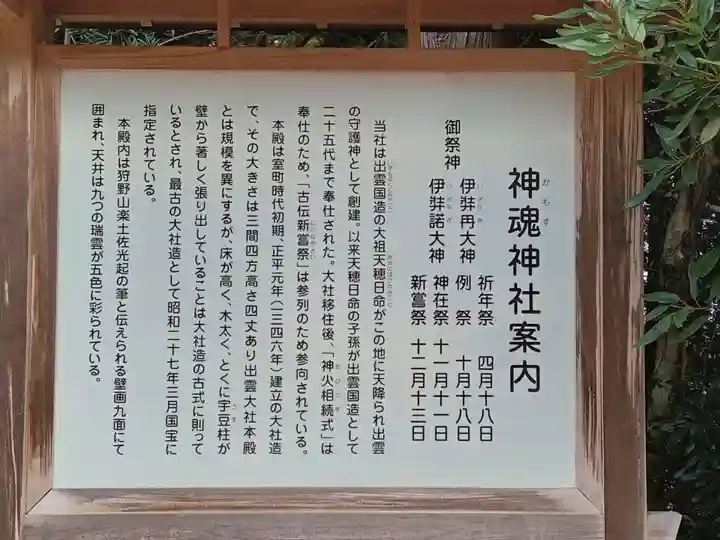 神魂神社案内
かもす
御祭神
伊弉冉大神
伊弉諾大神
祈年祭 四月十八日
例祭 十月十八日
神在祭 十一月十一日
新嘗祭 十二月十三日
当社は出雲国造の大祖天穂日命がこの地に天降られ出雲
の守護神として創建。以来天穂日命の子孫が出雲国造として
二十五代まで奉仕された。大社移住後、「神火相続式」は
奉仕のため、「古伝新嘗祭」は参列のため参向されている。
本殿は室町時代初期、正平元年(一三四六年)建立の大社造
で、その大きさは三間四方高さ四丈あり出雲大社本殿
とは規模を異にするが、床が高く、木太く、とくに宇豆柱が
壁から著しく張り出していることは大社造の古式に則って
いるとされ、最古の大社造として昭和二十七年三月国宝に
指定されている。
本殿内は狩野山楽土佐光起の筆と伝えられる壁画九面にて
囲まれ、天井は九つの瑞雲が五色に彩られている。